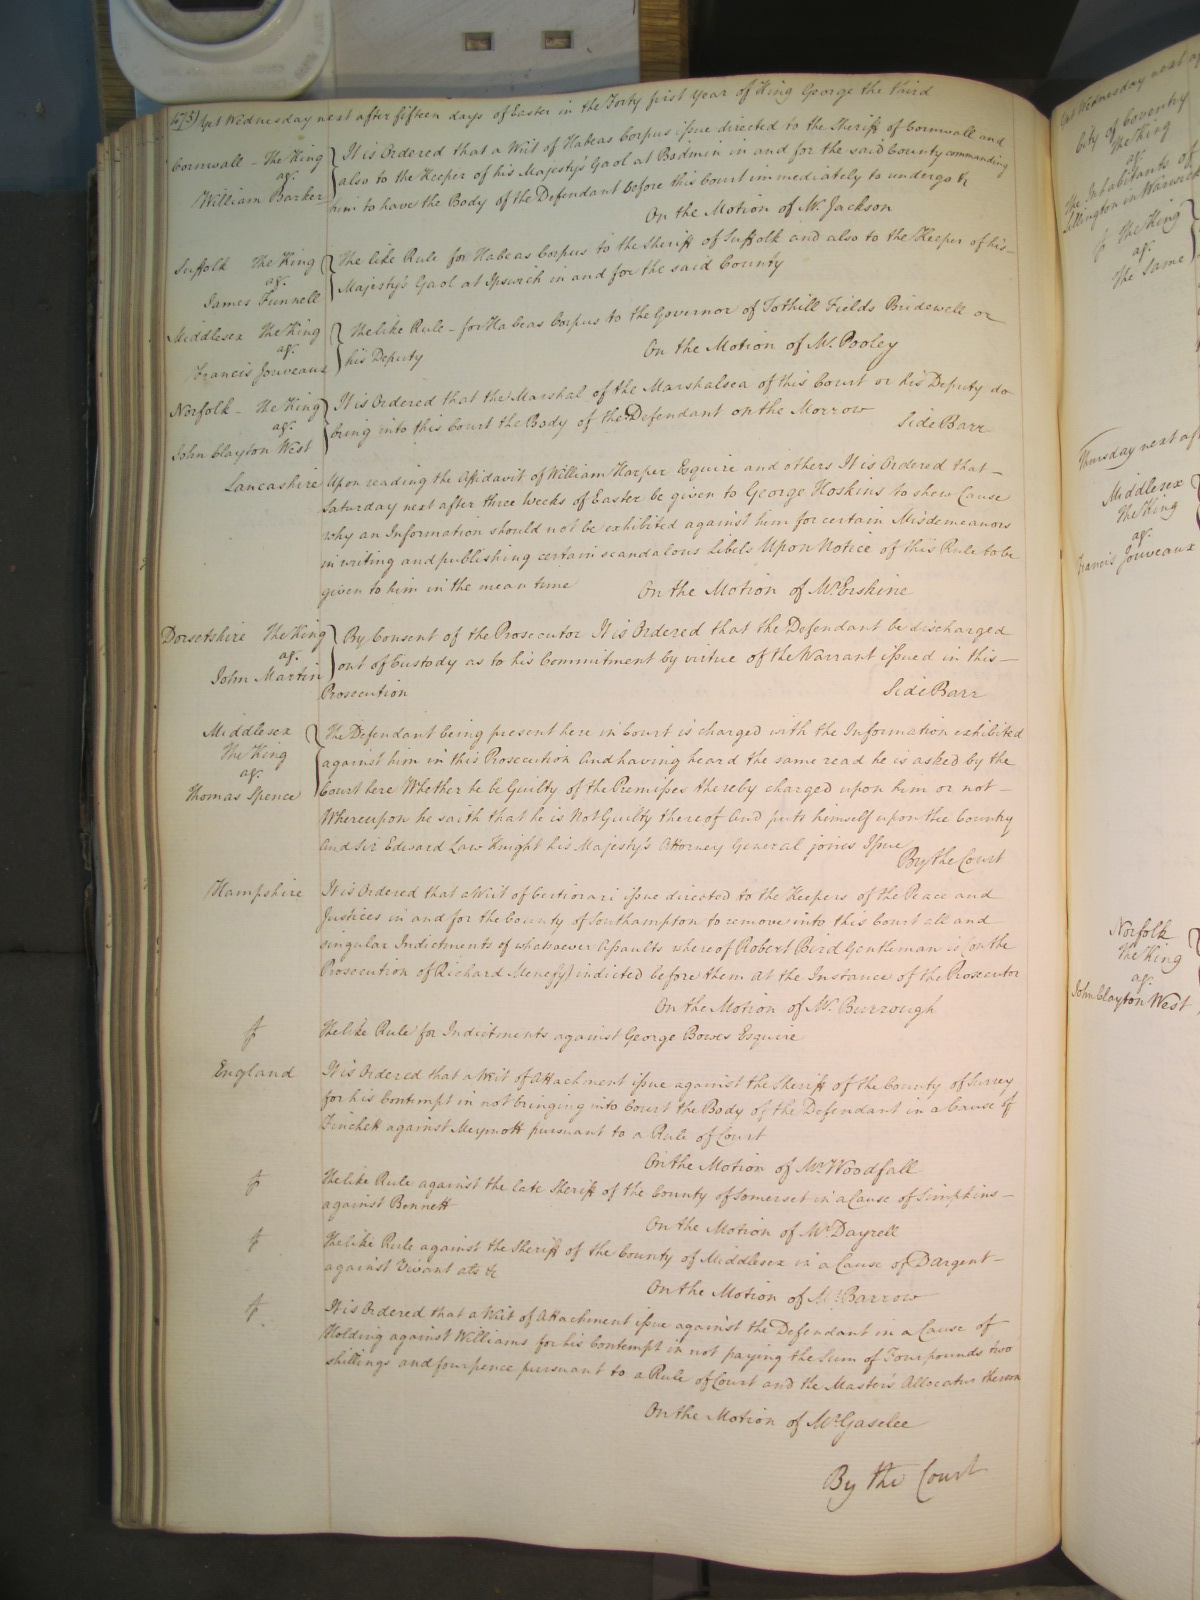 (273) Yet Wednesday next after fifteen days of Easter in the Forty first Year of King George the Third
Cornwall - The King
agt.
William Barker
It is Ordered that a Writ of Habeas Corpus issue directed to the Sheriff of Cornwall and
also to the Keeper of his Majesty's Gaol at Bodmin in and for the said County commanding
him to have the Body of the Defendant before this Court immediately to undergo &c
On the Motion of Mr. Jackson
Suffolk The King
agt.
James Funnell
The like Rule for Habeas Corpus to the Sheriff of Suffolk and also to the Keeper of his -
Majesty's Gaol at Ipswich in and for the said County
Middlesex The King
agt.
Francis Jouveaux
The like Rule - for Habeas Corpus to the Governor of Tothill Fields Bridewell or
his Deputy
On the Motion of Mr. Pooley
Norfolk - The King
agt.
John Clayton West
It is Ordered that the Marshal of the Marshalsea of this Court or his Deputy do
bring into this Court the Body of the Defendant on the Morrow
Side Barr
Lancashire
Upon reading the Affidavit of William Harper Esquire and others It is Ordered that -
Saturday next after three weeks of Easter be given to George Hoskins to shew Cause
why an Information should not be exhibited against him for certain Misdemeanors
in writing and publishing certain scandalous Libels Upon Notice of this Rule to be
given to him in the mean time
On the Motion of Mr. Erskine
Dorsetshire The King
agt.
John Martin
By Consent of the Prosecutor It is Ordered that the Defendant be discharged
out of Custody as to his Commitment by virtue of the Warrant issued in this -
Prosecution
Side Barr
Middlesex
The King
agt.
Thomas Spence
The Defendant being present here in Court is charged with the Information exhibited
against him in this Prosecution And having heard the same read he is asked by the
Court here Whether he be Guilty of the Premisses thereby charged upon him or not -
Whereupon he saith that he is Not Guilty thereof And puts himself upon the Country
And Sir Edward Law Knight his Majesty's Attorney General joins Issue
By the Court
Hampshire
It is Ordered that a Writ of Certiorari issue directed to the Keepers of the Peace and
Justices in and for the County of Southampton to remove into this Court all and
singular Indictments of whatsoever Assaults whereof Robert Bird Gentleman is (on the
Prosecution of Richard Menefy) indicted before them At the Instance of the Prosecutor
On the Motion of Mr. Burrough
The like Rule for Indictments against George Bowes Esquire
England
It is Ordered that a Writ of Attachment issue against the Sheriff of the County of Surrey
for his Contempt in not bringing into Court the Body of the Defendant in a Cause of
Finchett against Meymott pursuant to a Rule of Court
On the Motion of Mr. Woodfall
The like Rule against the late Sheriff of the County of Somerset in a Cause of Simpkins -
against Bennett
On the Motion of Mr. Dayrell
The like Rule against the Sheriff of the County of Middlesex in a Cause of Dargent -
against Vivant als &c
On the Motion of Mr. Barrow
It is Ordered that a Writ of Attachment issue against the Defendant in a Cause of
Holding against Williams for his Contempt in not paying the Sum of Four pounds two
shillings and four pence pursuant to a Rule of Court and the Master's Allocatur thereon
On the Motion of Mr. Gaselee
By the Court
Yet Wednesday next
City of Coventry
The King
agt.
The Inhabitants of
Allington in Warwick
The King
agt.
The Same
Thursday next
Middlesex
The King
agt.
Francis Jouveaux
Norfolk
The King
agt.
John Clayton West